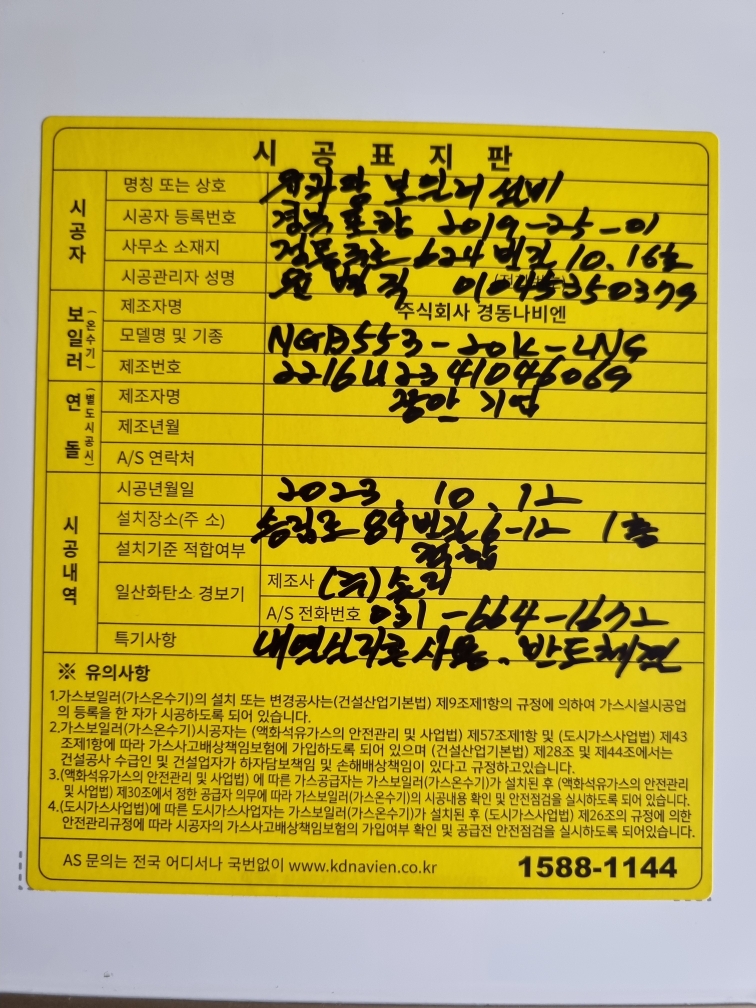 시 공 표 지 판
시공자
명칭 또는 상호 보일러 설비
시공자 등록번호 경북 포항 2019-25-01
사무소 소재지 624번길 10. 16호
시공관리자 성명 (전화번호) 01045350379
보일러 (온수기)
제조자명 주식회사 경동나비엔
모델명 및 기종 NGB553-20K-LNG
제조번호 2216U2341046069
연돌 (별도시공시)
제조자명
제조년월
A/S 연락처
시공내역
시공년월일 2023. 10. 12
설치장소(주 소) 송림로 89번길 6-12 1층
설치기준 적합여부 적합
일산화탄소 경보기 제조사 (주)
A/S 전화번호 031-664-1672
특기사항 내열실리콘 사용. 반도체결
※ 유의사항
1.가스보일러(가스온수기)의 설치 또는 변경공사는(건설산업기본법) 제9조제1항의 규정에 의하여 가스시설시공업
의 등록을 한 자가 시공하도록 되어 있습니다.
2.가스보일러(가스온수기)시공자는 (액화석유가스의 안전관리 및 사업법) 제57조제1항 및 (도시가스사업법) 제43
조제1항에 따라 가스사고배상책임보험에 가입하도록 되어 있으며 (건설산업기본법) 제28조 및 제44조에서는
건설공사 수급인 및 건설업자가 하자담보책임 및 손해배상책임이 있다고 규정하고있습니다.
3.(액화석유가스의 안전관리 및 사업법) 에 따른 가스공급자는 가스보일러(가스온수기)가 설치된 후 (액화석유가스의 안전관리
및 사업법) 제30조에서 정한 공급자 의무에 따라 가스보일러(가스온수기)의 시공내용 확인 및 안전점검을 실시하도록 되어 있습니다.
4.(도시가스사업법)에 따른 도시가스사업자는 가스보일러(가스온수기)가 설치된 후 (도시가스사업법) 제26조의 규정에 의한
안전관리규정에 따라 시공자의 가스사고배상책임보험의 가입여부 확인 및 공급전 안전점검을 실시하도록 되어있습니다.
AS 문의는 전국 어디서나 국번없이 www.kdnavien.co.kr 1588-1144